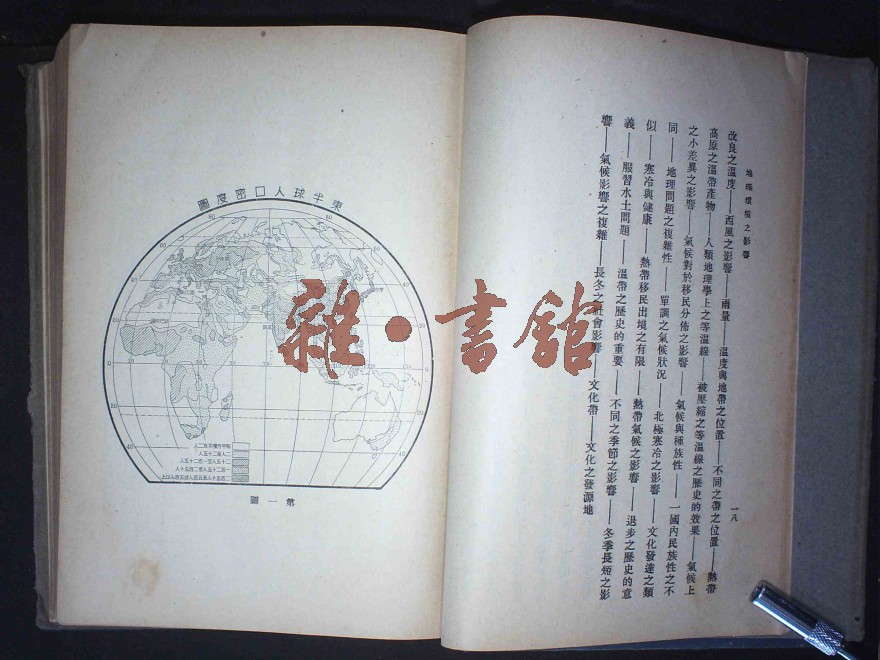 地理環境之影響
一八
改良之溫度——西風之影響——雨量——溫度與地帶之位置——不同之帶之位置——熱帶
高原之溫帶產物——人類地理學上之等溫線——被壓縮之等溫線之歷史的效果——氣候上
之小差異之影響——氣候對於移民分佈之影響——氣候與種族性——一國內民族性之不
同——地理問題之複雜性——單調之氣候狀況——北極寒冷之影響——文化發達之類
似——寒冷與健康——熱帶移民出境之有限——熱帶氣候之影響——退步之歷史的意
義——服習水土問題——溫帶之歷史的重要——不同之季節之影響——冬季長短之影
響——氣候影響之複雜——長冬之社會影響——文化帶——文化之發源地
東半球人口密度圖
第一圖
雜·書館